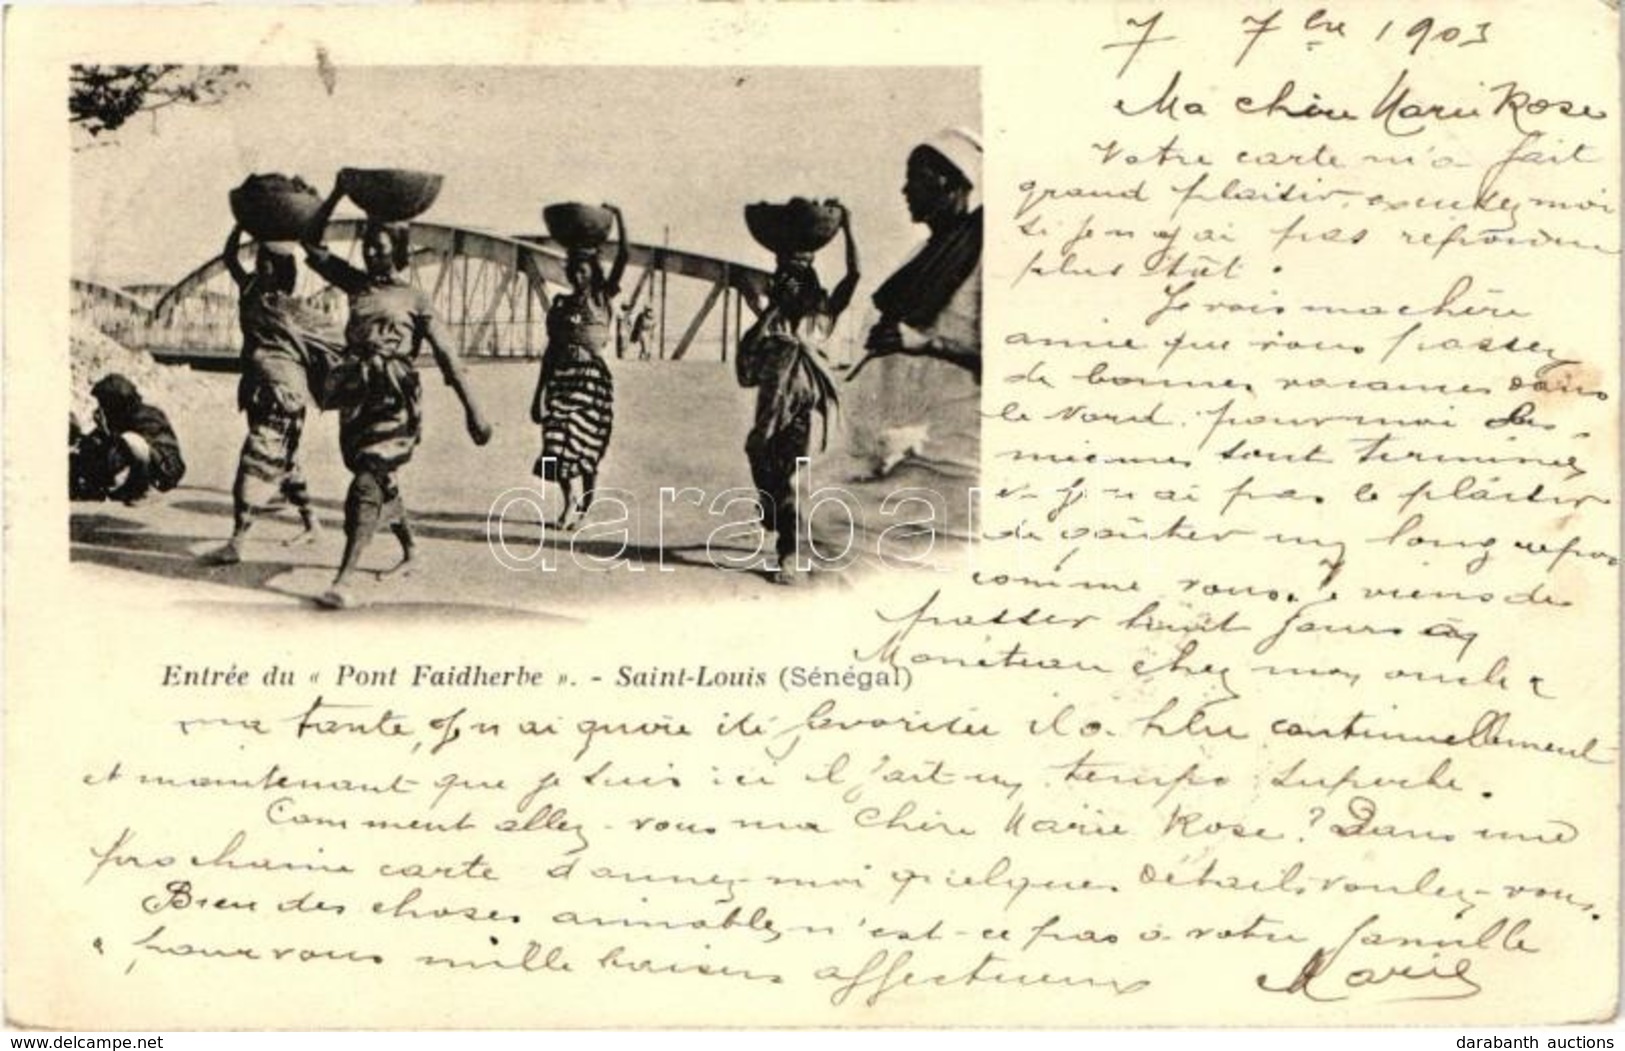 7 7bre 1903
Ma chère Marie Rose
Votre carte m'a fait
grand plaisir. excusez moi
si je n'y ai pas répondu
plus tôt.
Je vois ma chère
amie que vous passez
de bonnes vacances dans
le Nord. pour moi les
miennes sont terminées
je n'ai pas le plaisir
de goûter un long repos
comme vous. Je viens de
passer huit jours à
Monéteau chez mon oncle &
ma tante, je n'ai guère été favorisée il a plu continuellement
et maintenant que je suis ici il fait un temps superbe.
Comment allez-vous ma chère Marie Rose? Dans une
prochaine carte donnez-moi quelques détails voulez-vous.
Bien des choses aimables n'est-ce pas à votre famille
& pour vous mille baisers affectueux Marie
Entrée du « Pont Faidherbe ». - Saint-Louis (Sénégal)
darabanth
www.delcampe.net
darabanth auctions